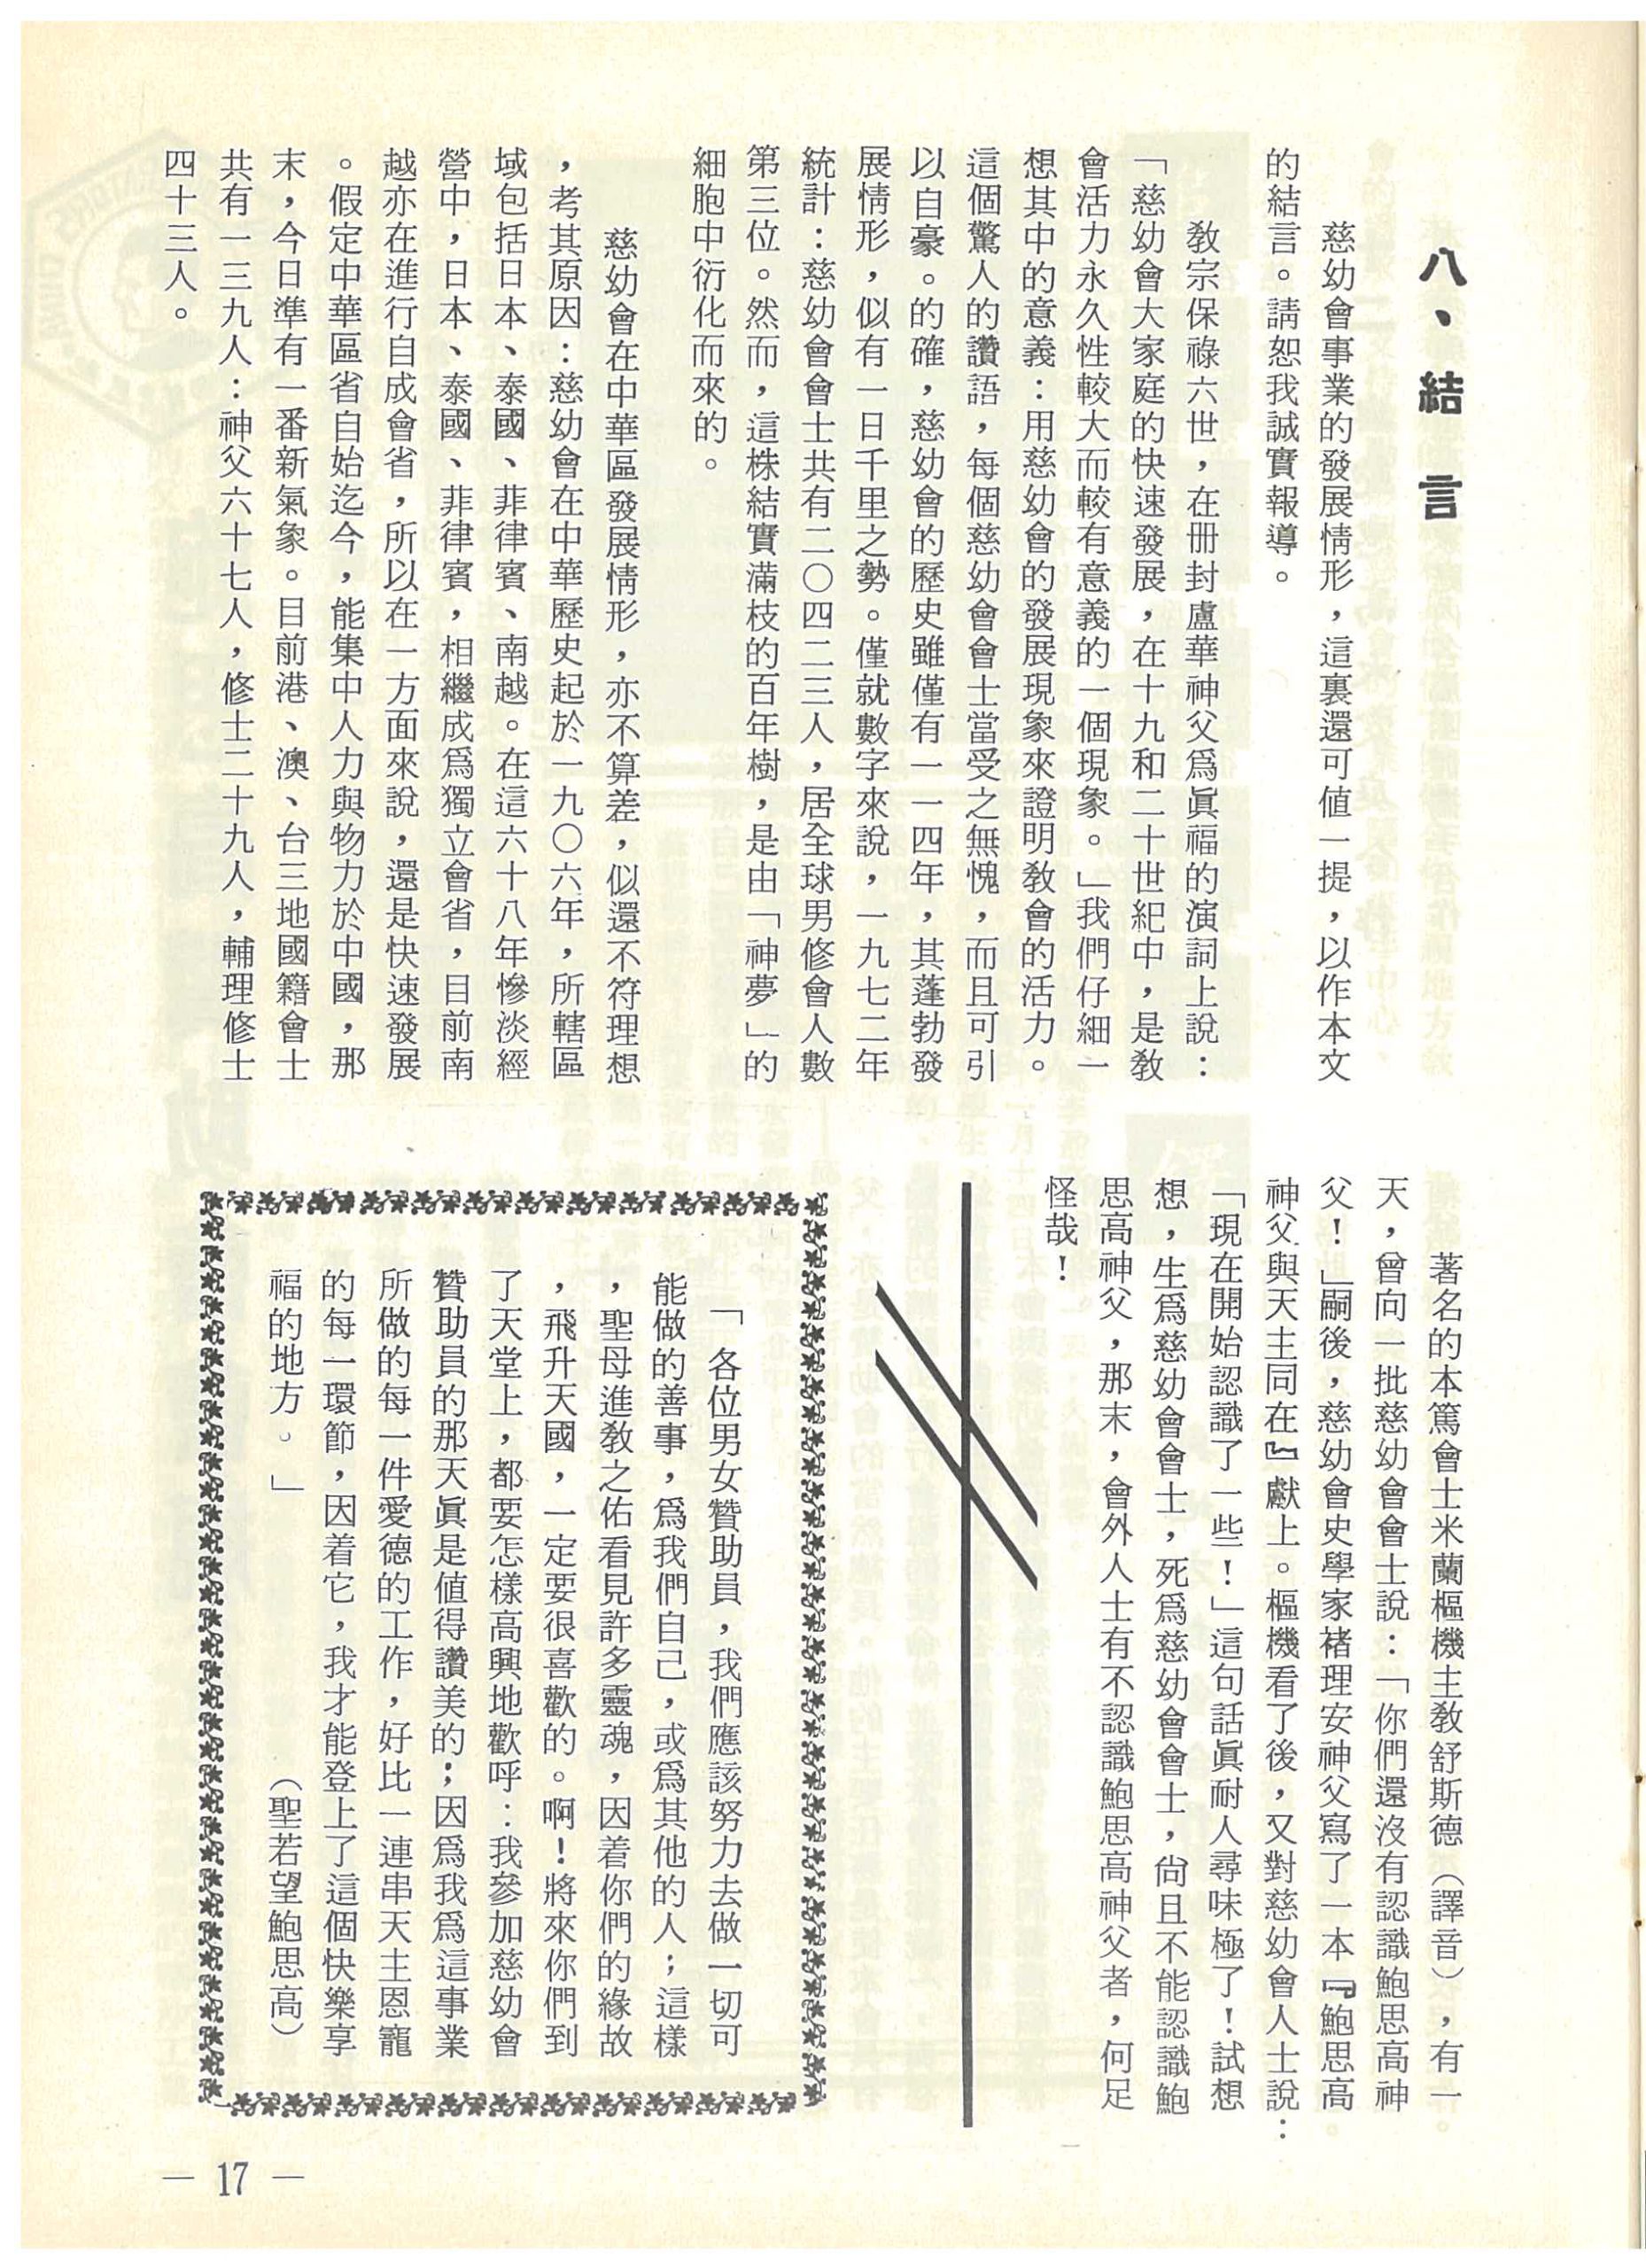 八、結言
慈幼會事業的發展情形，這裏還可値一提，以作本文
的結言。請恕我誠實報導。
敎宗保祿六世，在册封盧華神父爲眞福的演詞上說：
「慈幼會大家庭的快速發展，在十九和二十世紀中，是敎
會活力永久性較大而較有意義的一個現象。」我們仔細一
想其中的意義：用慈幼會的發展現象來證明敎會的活力。
這個驚人的讚語，每個慈幼會會士當受之無愧，而且可引
以自豪。的確，慈幼會的歷史雖僅有一一四年，其蓬勃發
展情形，似有一日千里之勢。僅就數字來說，一九七二年
統計：慈幼會會士共有二〇四二三人，居全球男修會人數
第三位。然而，這株結實滿枝的百年樹，是由「神夢」的
細胞中衍化而來的。
慈幼會在中華區發展情形，亦不算差，似還不符理想
，考其原因：慈幼會在中華歷史起於一九〇六年，所轄區
域包括日本、泰國、菲律賓、南越。在這六十八年慘淡經
營中，日本、泰國、菲律賓，相繼成爲獨立會省，目前南
越亦在進行自成會省，所以在一方面來說，還是快速發展
。假定中華區省自始迄今，能集中人力與物力於中國，那
末，今日準有一番新氣象。目前港、澳、台三地國籍會士
共有一三九人：神父六十七人，修士二十九人，輔理修士
四十三人。
著名的本篤會士米蘭樞機主敎舒斯德（譯音），有一
天，曾向一批慈幼會會士說：「你們還沒有認識鮑思高神
父！」嗣後，慈幼會史學家褚理安神父寫了一本『鮑思高
神父與天主同在』獻上。樞機看了後，又對慈幼會人士說：
「現在開始認識了一些！」這句話眞耐人尋味極了！試想
想，生爲慈幼會會士，死爲慈幼會會士，尙且不能認識鮑
思高神父，那末，會外人士有不認識鮑思高神父者，何足
怪哉！
「各位男女贊助員，我們應該努力去做一切可
能做的善事，爲我們自己，或爲其他的人；這樣
，聖母進敎之佑看見許多靈魂，因着你們的緣故
，飛升天國，一定要很喜歡的。啊！將來你們到
了天堂上，都要怎樣高興地歡呼：我參加慈幼會
贊助員的那天眞是値得讚美的；因爲我爲這事業
所做的每一件愛德的工作，好比一連串天主恩寵
的每一環節，因着它，我才能登上了這個快樂享
福的地方。」
（聖若望鮑思高）
— 17 —